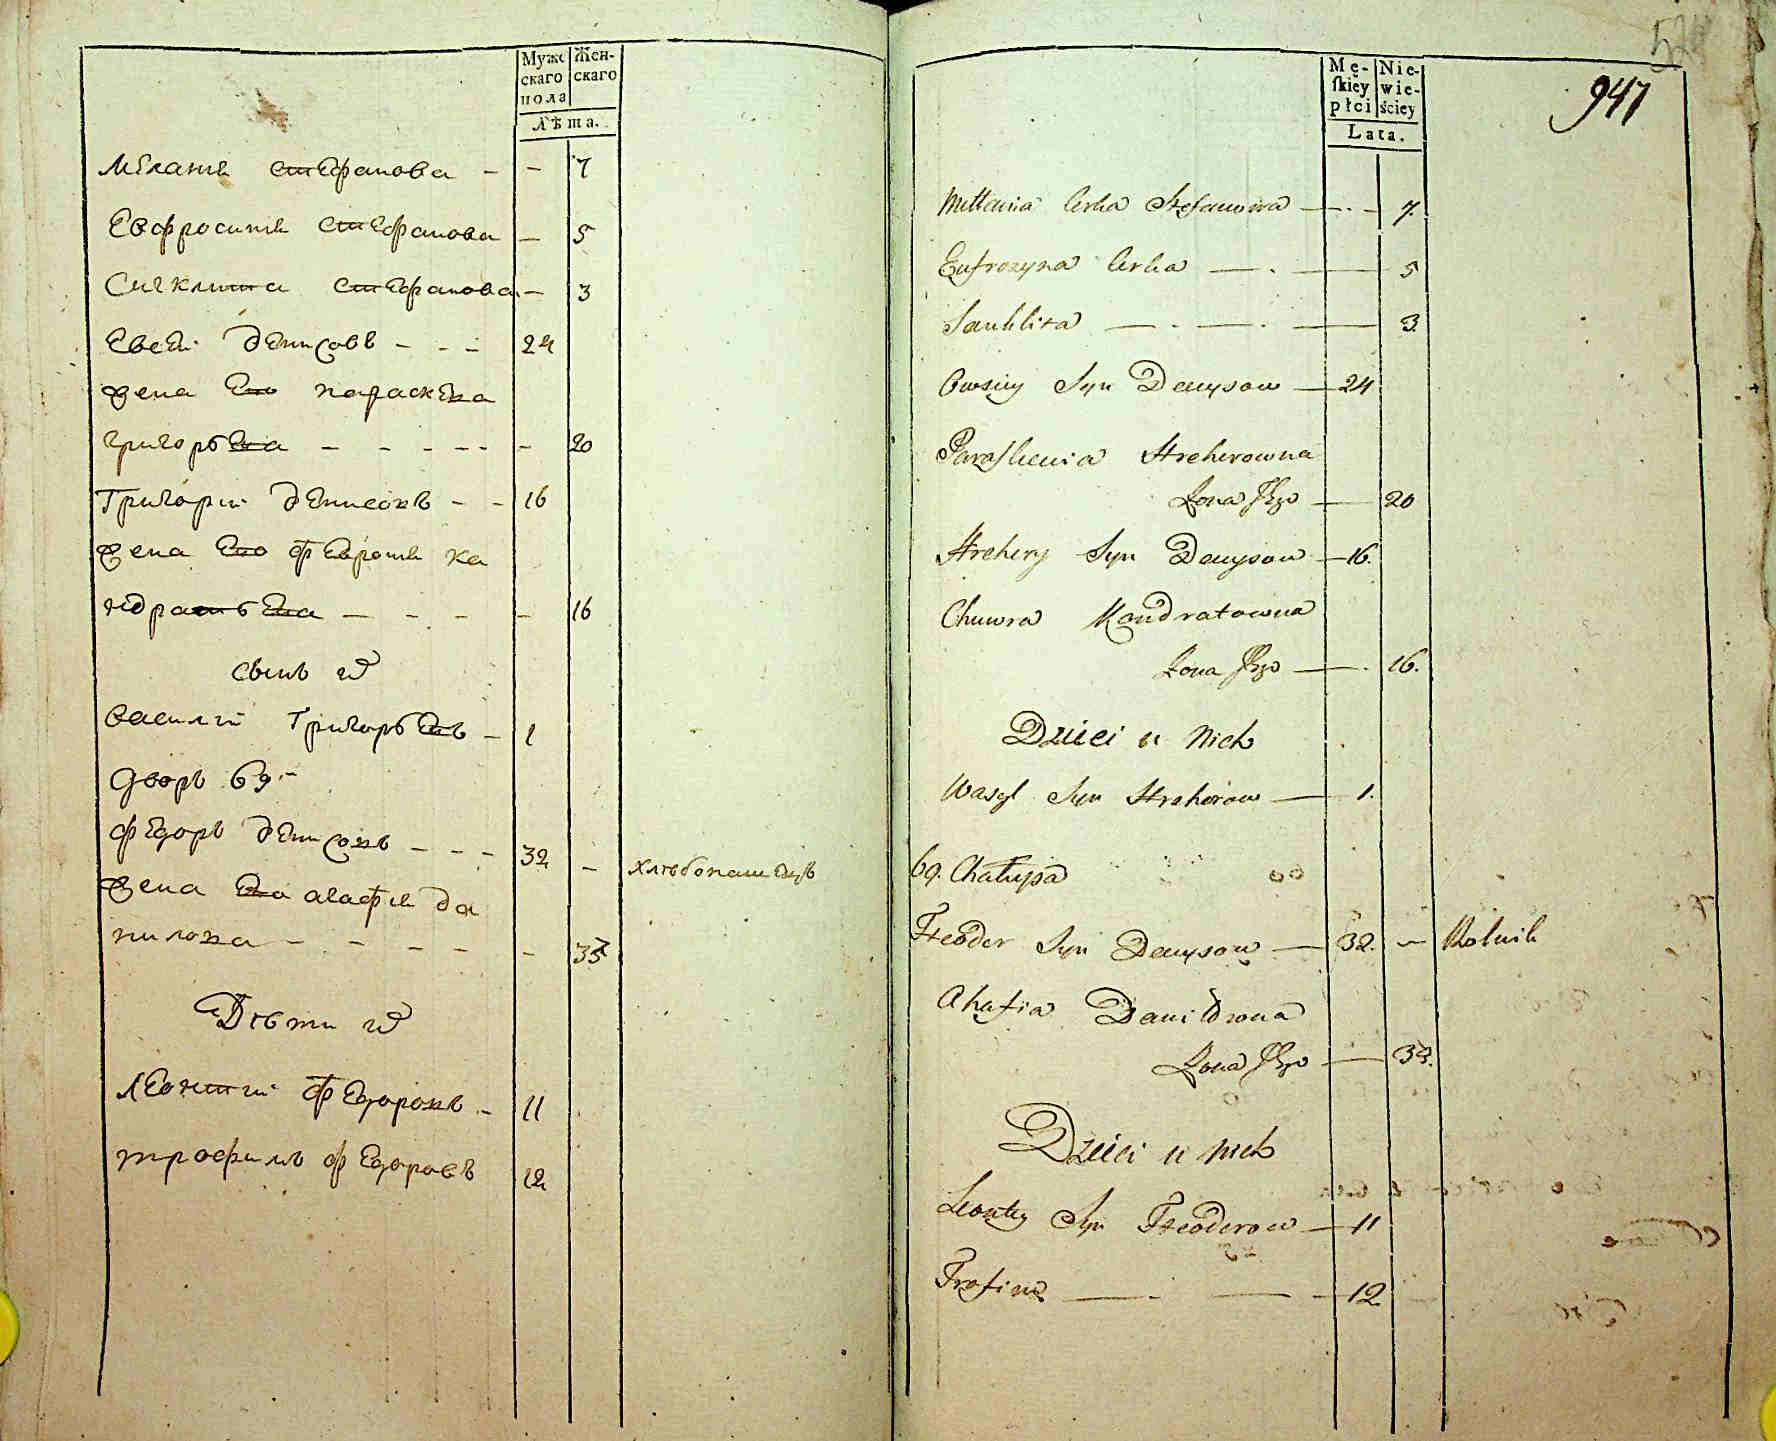 Мужс
скаго
пола
Жен-
скаго
Лѣта.
Меланія Стефанова - - 7
Евфросинія Стефанова - 5
Сигклита Стефанова - 3
Евсей Денисовъ - - - 24
жена Его параскева
григорьева - - - - - - 20
Григорій денисовъ - - 16
жена Его феврония ка
ндратьева - - - - - 16
сынъ их
василий Григорьевъ - 1
дворъ 69 -
федоръ денисовъ - - - 32 - хлѣбопашецъ
жена Его агафия да
нилова - - - - - 33
Дѣти их
леонтий федоровъ - 11
трофимъ федоровъ 12
947
Mę-
skiey
płci
Nie-
wie-
ściey
Lata.
Mełania Cerka Stefanowa — . — 7.
Eufrozyna Cerka — . — 5
Sanklita — . — . — 3.
Owsiey Syn Denysow — 24
Paraskewia Hreherowna
Żona Jego — 20
Hrehery Syn Denysow — 16.
Chuwra Kondratowna
Żona Jego — . 16.
Dzieci u Nich
Wasyl Syn Hrehorow — 1.
69. Chałupa
Fteodor Syn Denysow — 32. — Rolnik
Ahafia Daniłowna
Żona Jego — 33.
Dzieci u nich
Leontey Syn Fteoderow — 11
Trofim — . — 12